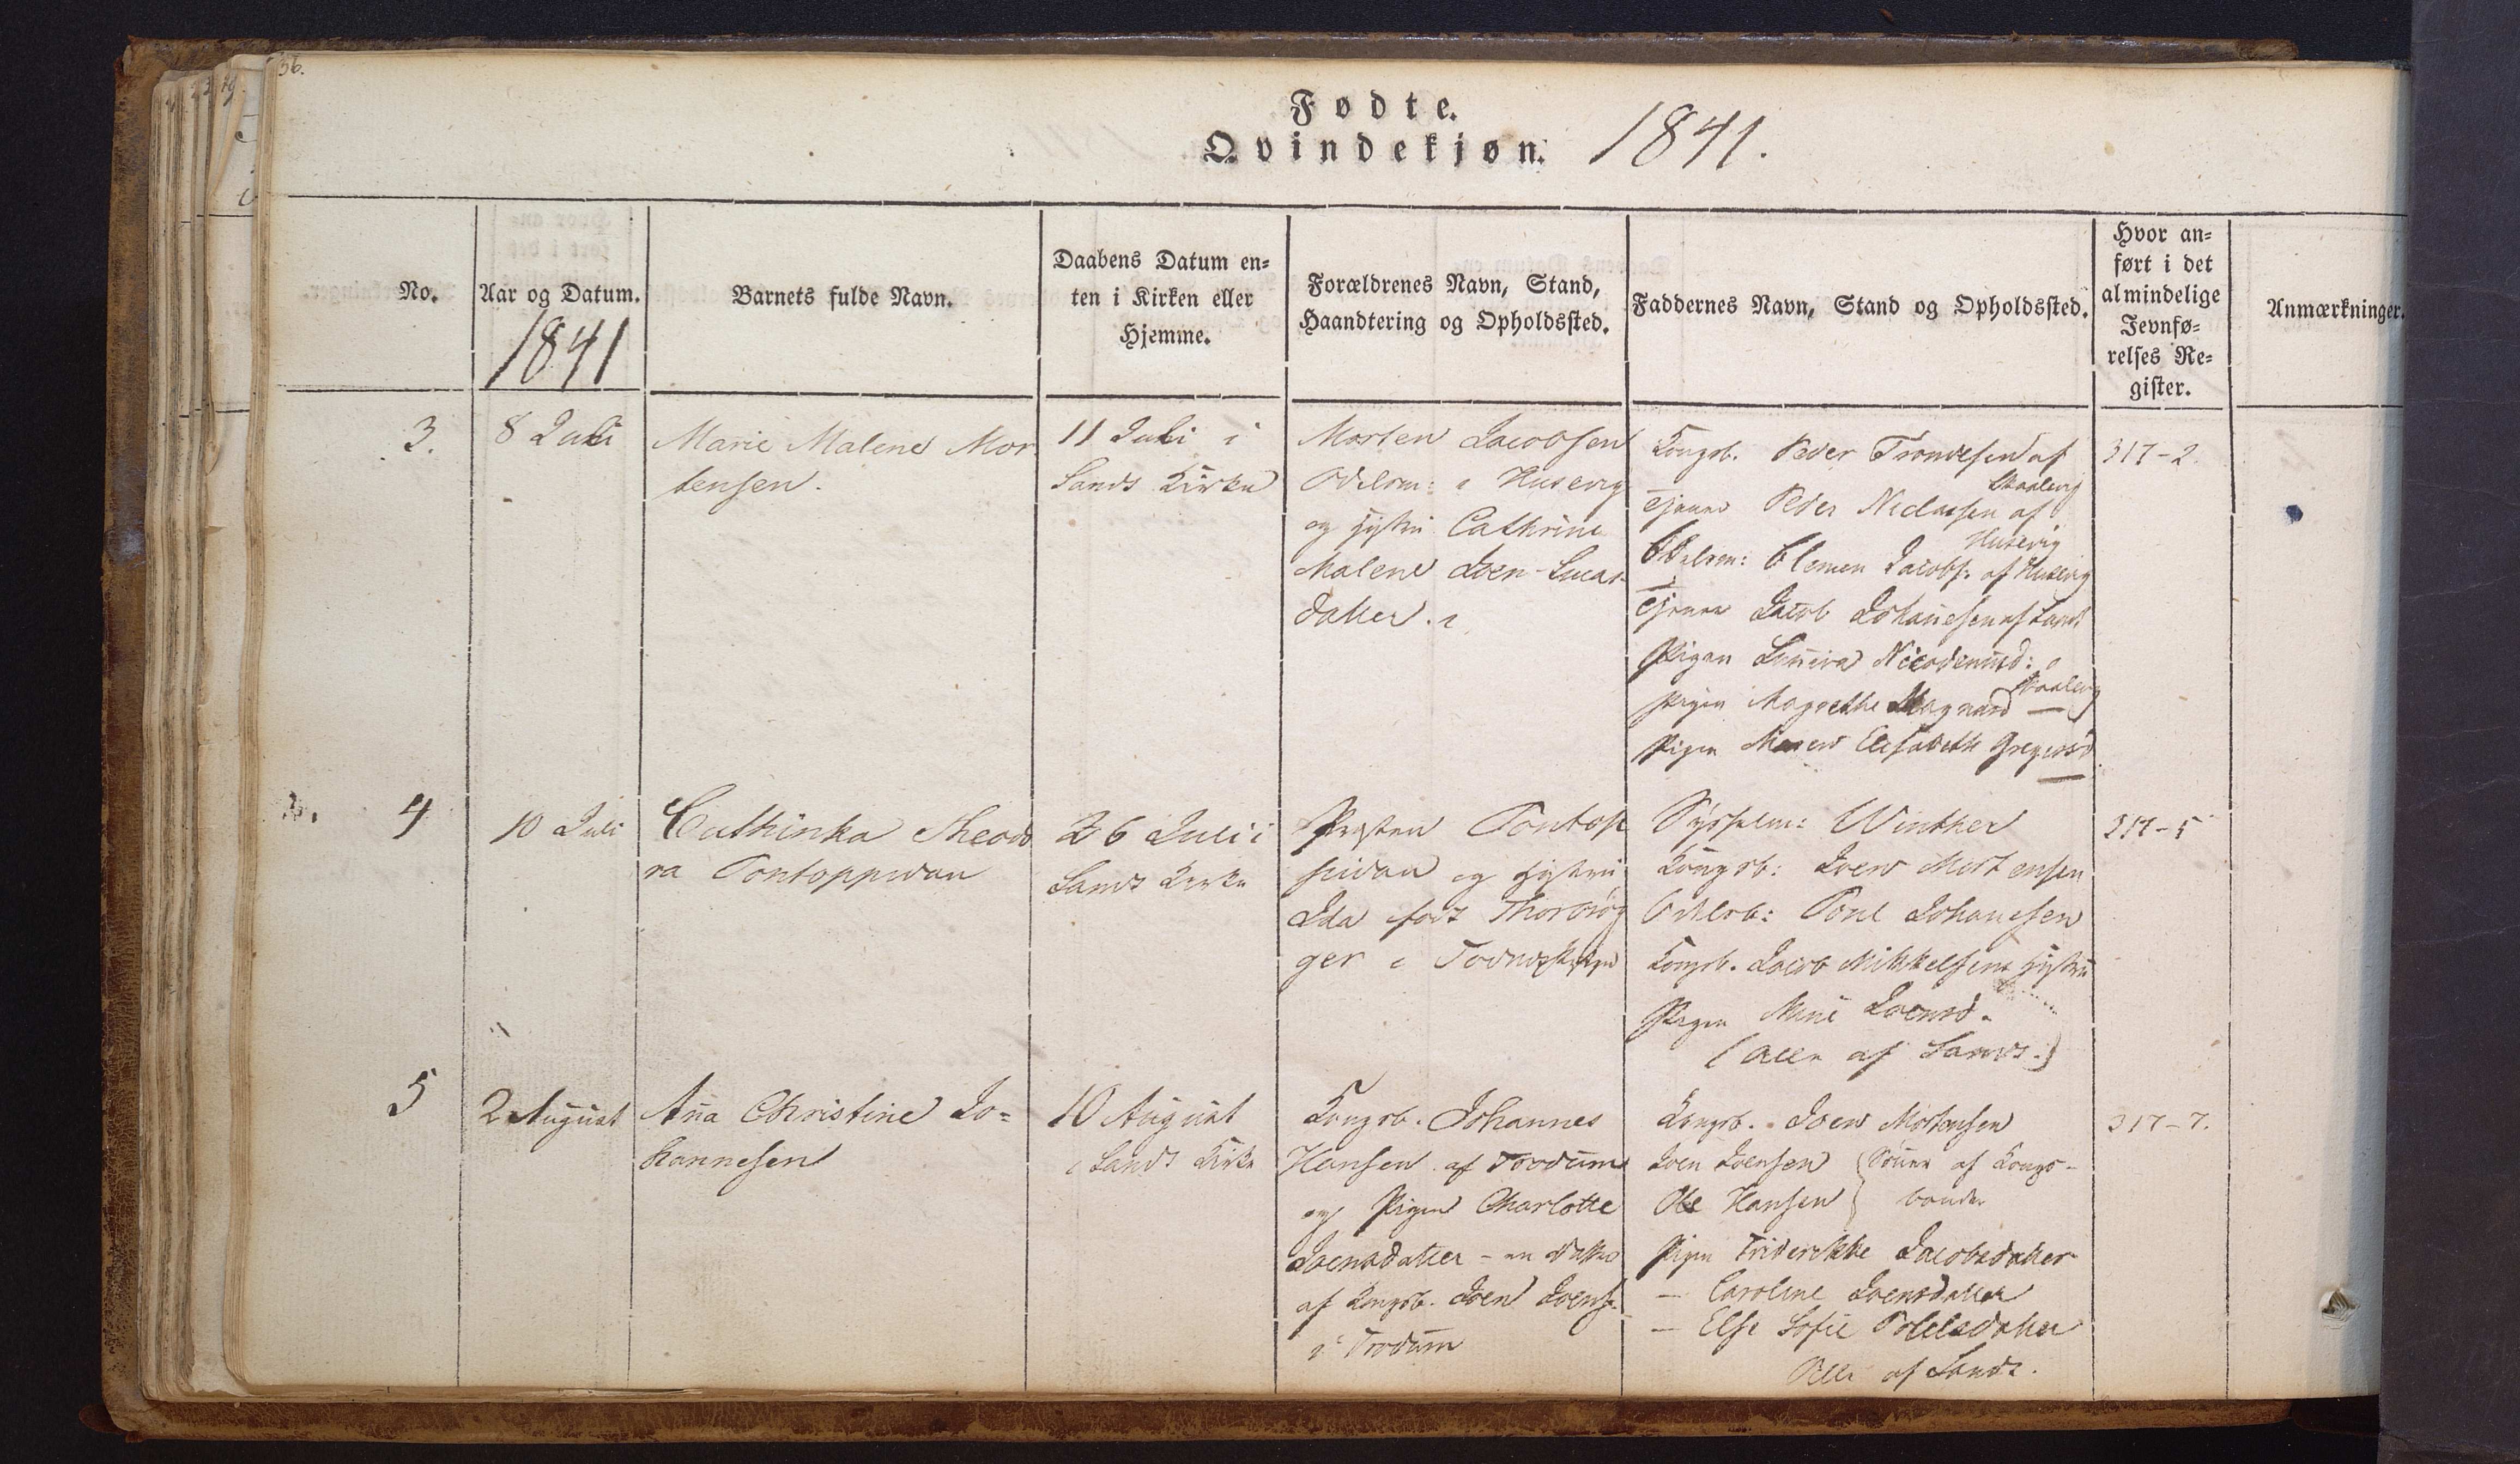 36.
Fødte.
Qvindekjøn. 1841.
No.
Aar og Datum.
1841
Barnets fulde Navn.
Daabens Datum en-
ten i Kirken eller
Hjemme.
Forældrenes Navn, Stand,
Haandtering og Opholdssted.
Faddernes Navn, Stand og Opholdssted.
Hvor an-
ført i det
almindelige
Jevnfø-
relses Re-
gister.
Anmærkninger.
3.
8 Juli
Marie Malene Mor-
tensen.
11 Juli i
Sands Kirke
Morten Jacobsen
Odelsm: i Husevig
og Hustru Cathrine
Malene Joen-Lucas-
datter.
Kongsb. Peder Trondesen af
Skaalevig
Tjener Peder Niclassen af
Husevig
Odelsm: Clemen Jacobs. af Husevig
Tjener Jacob Johannesen af Sand
Pigen Sunneva Nicodemusd:
Skaalevig
Pigen Magrethe Magnusd —
Pigen Maren Elisabeth Gregersd
—
317-2.
4
10 Juli
Cathinka Theodo
ra Pontoppidan
26 Juli i
Sands Kirke
Præsten Pontop
pidan og Hustru
Ida født Thorbrøg
ger i Todnæs
Sysselm: Winther
Kongsb: Joen Mortensen
Odelsb: Poul Johannesen
Kongsb. Jacob Mikkelsens Hustru
Pigen Mine Joensd.
(Alle af Sands.)
317-5
5
2 August
Anna Christine Jo-
hannesen
10 August
i Sands Kirke
Kongsb. Johannes
Hansen af Trodum
og Pigen Charlotte
Joensdatter - en Datter
af Kongsb. Joen Joens.
i Trodum
Kongsb. Joen Mortensen
Joen Joensen } Sønner af Kongs-
Ole Hansen } bønder
Pigen Friderikke Jacobsdatter
— Caroline Joensdatter
— Else Sofie Poulsdatter
Alle af Sands.
317-7.